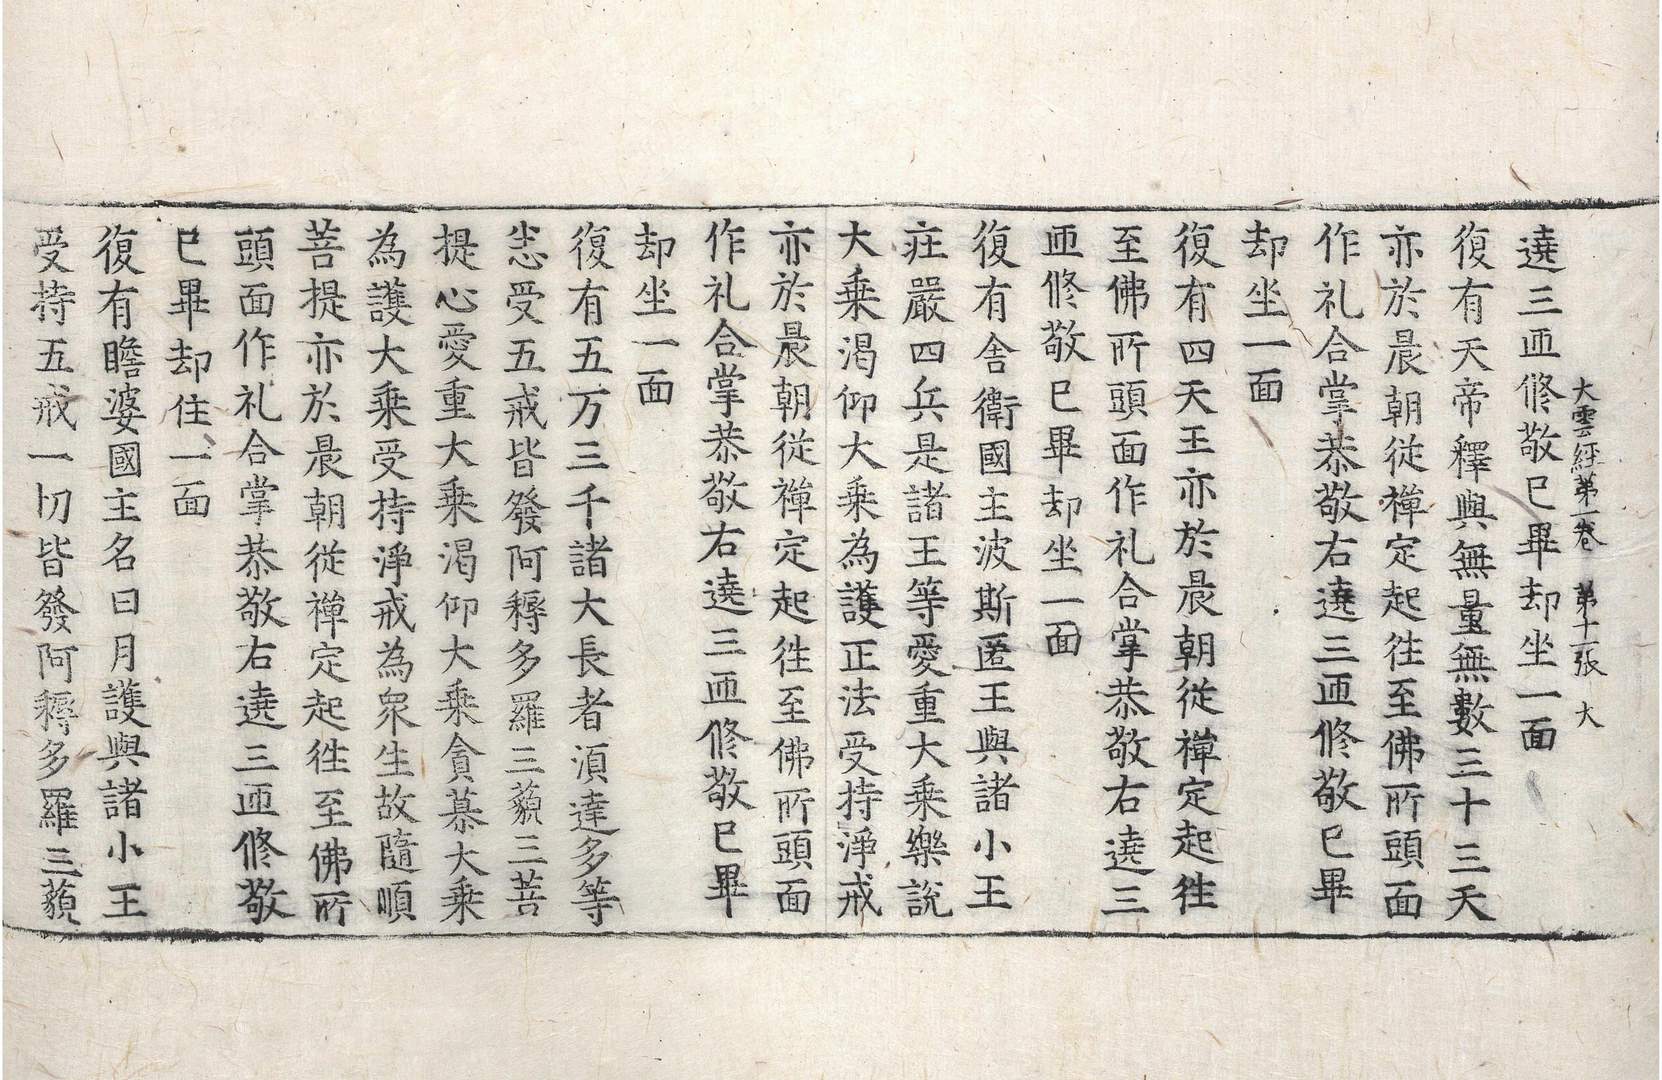 大雲經第一卷 第十二張 大
遶三匝修敬已畢却坐一面
復有天帝釋與無量無數三十三天
亦於晨朝從禪定起往至佛所頭面
作礼合掌恭敬右遶三匝修敬已畢
却坐一面
復有四天王亦於晨朝從禪定起往
至佛所頭面作礼合掌恭敬右遶三
匝修敬已畢却坐一面
復有舍衛國主波斯匿王與諸小王
疘嚴四兵是諸王等愛重大乘樂說
大乘渴仰大乘為護正法受持淨戒
亦於晨朝從禪定起往至佛所頭面
作礼合掌恭敬右遶三匝修敬已畢
却坐一面
復有五万三千諸大長者湏達多等
悉受五戒皆發阿耨多羅三藐三菩
提心愛重大乘渴仰大乘貪慕大乘
為護大乘受持淨戒為眾生故隨順
菩提亦於晨朝從禪定起往至佛所
頭面作礼合掌恭敬右遶三匝修敬
已畢却住一面
復有瞻婆國主名曰月護與諸小王
受持五戒一切皆發阿耨多羅三藐